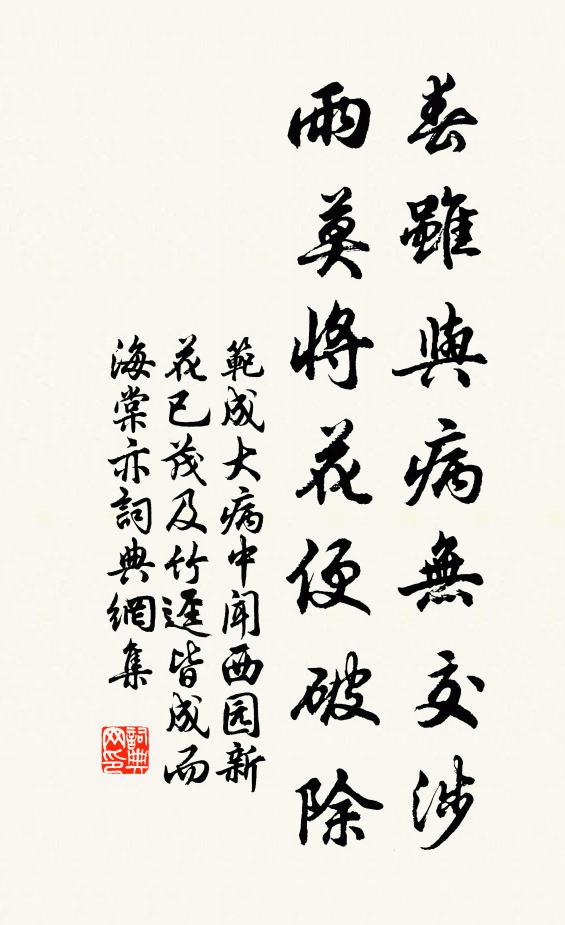 春雖與病無交涉
雨莫將花便破除
範成大病中聞西园新
花已茂及竹逕皆成而
海棠亦詞典網集
詞典
网印